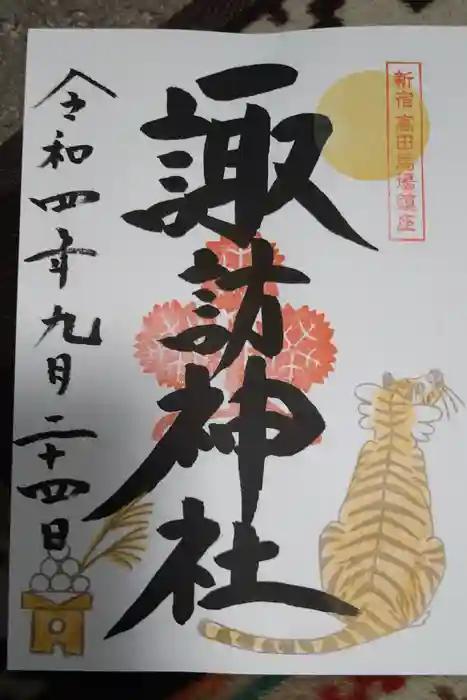 新宿高田馬場鎮座
諏訪神社
令和四年九月二十四日